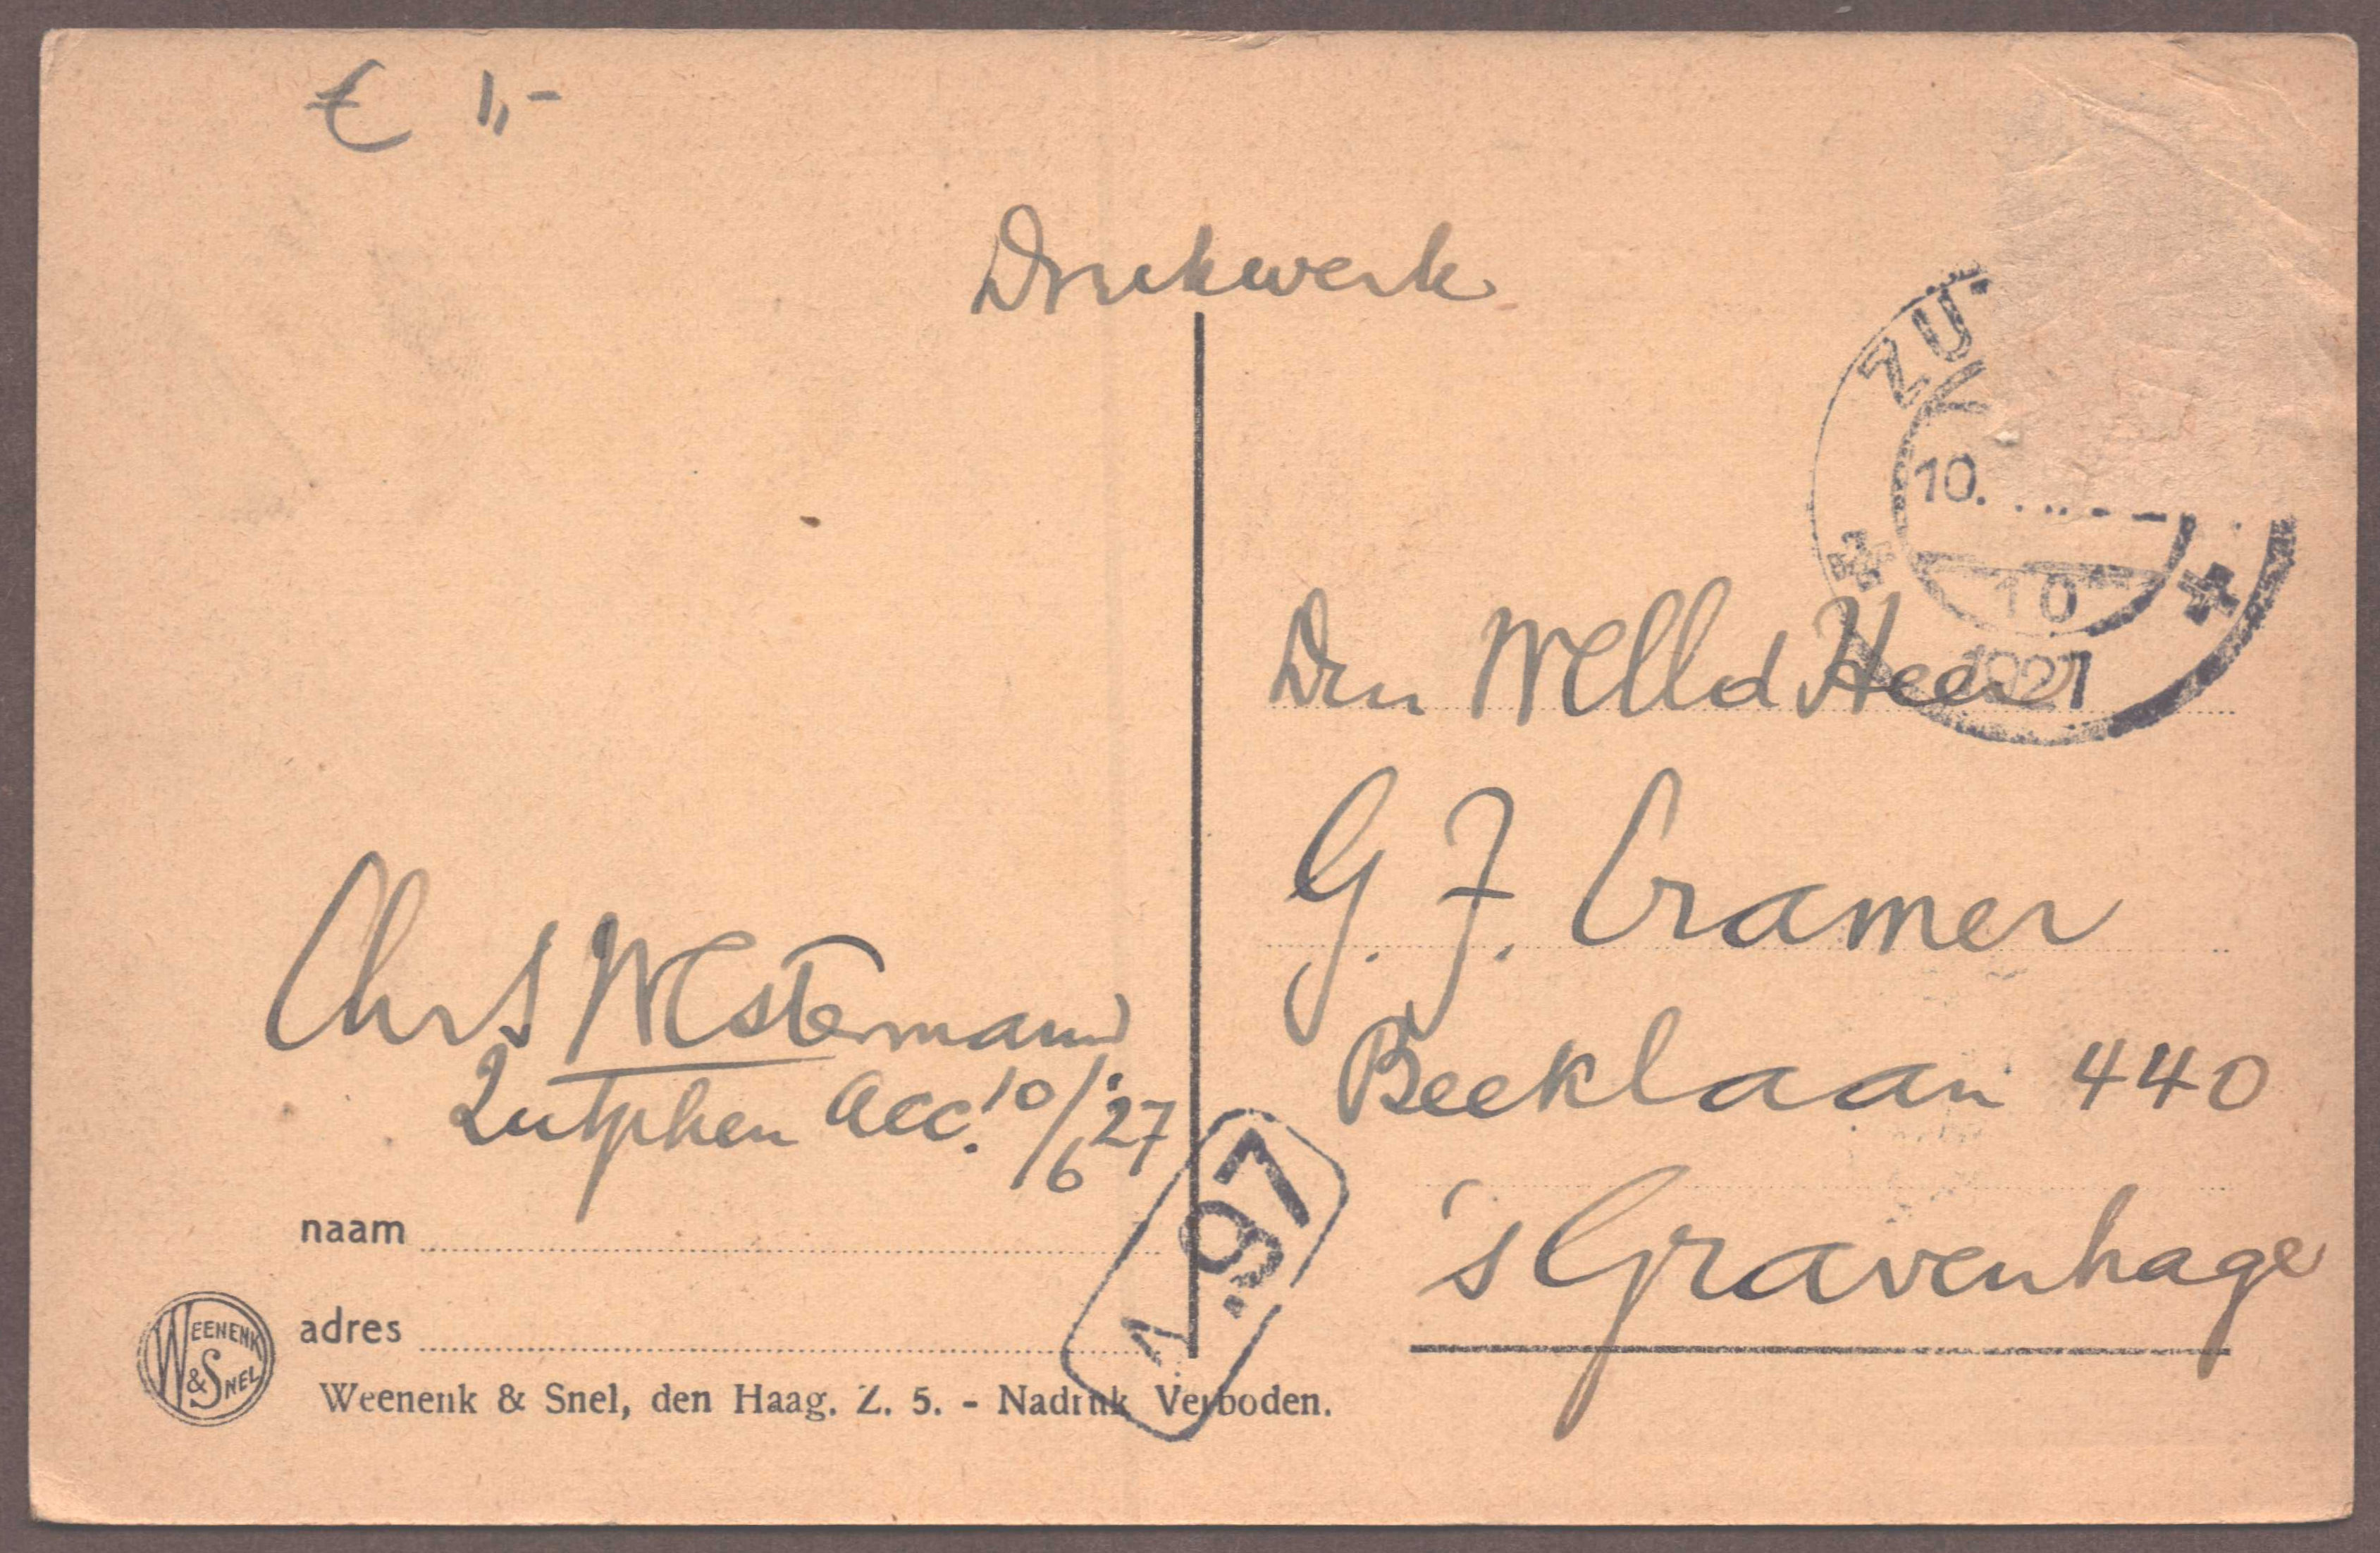 € 1,-
Drukwerk
ZU
10.
10
1927
Den WElEd Heer
G. J. Cramer
Beeklaan 440
's Gravenhage
Chr S WEstermann
Zutphen acc. 10/6 '27
1.97
naam
adres
WEENENK
& SNEL
Weenenk & Snel, den Haag. Z. 5. - Nadruk Verboden.